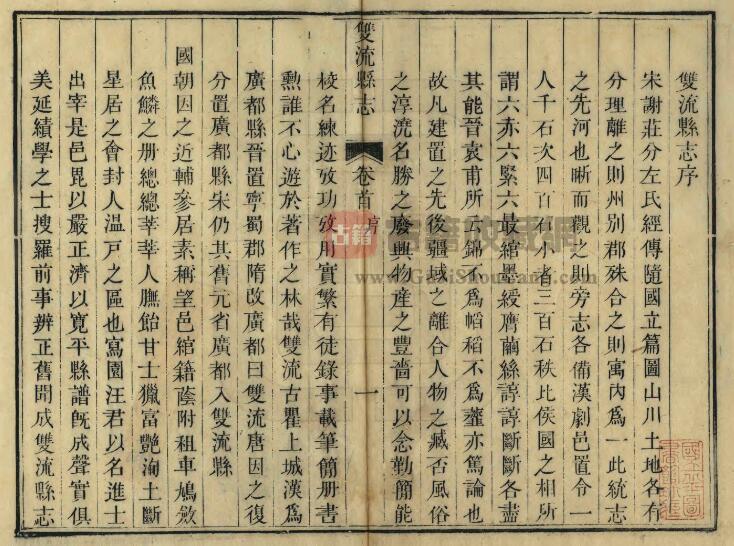 雙流縣志序
宋謝莊分左氏經傳隨國立篇圖山川土地各有
分理離之則州別郡殊合之則寓內為一此統志
之先河也晰而觀之則旁志各備漢劇邑置令一
人千石次四百石小者三百石秩比侯國之相所
謂六赤六緊六最綰墨綬膺繭絲諄諄斷斷各盡
其能晉袁甫所云錦不為幍稻不為虀亦篤論也
故凡建置之先後疆域之離合人物之臧否風俗
之淳澆名勝之廢興物産之豐嗇可以念勤簡能
雙流縣志
卷首
序
一
校名練迹攷功效用實繁有徒錄事載筆簡册書
勲誰不心遊於著作之林哉雙流古瞿上城漢為
廣都縣晉置寧蜀郡隋改廣都曰雙流唐因之復
分置廣都縣宋仍其舊元省廣都入雙流縣
國朝因之近輔參居素稱望邑綰籍蔭附租車鳩斂
魚鱗之册總總莘莘人膴飴甘士獵富艷洵土斷
星居之會封人温戸之區也寫園汪君以名進士
出宰是邑毘以嚴正濟以寬平縣譜旣成聲實俱
美延績學之士搜羅前事辨正舊聞成雙流縣志
古籍
www.GujiShuWang.com